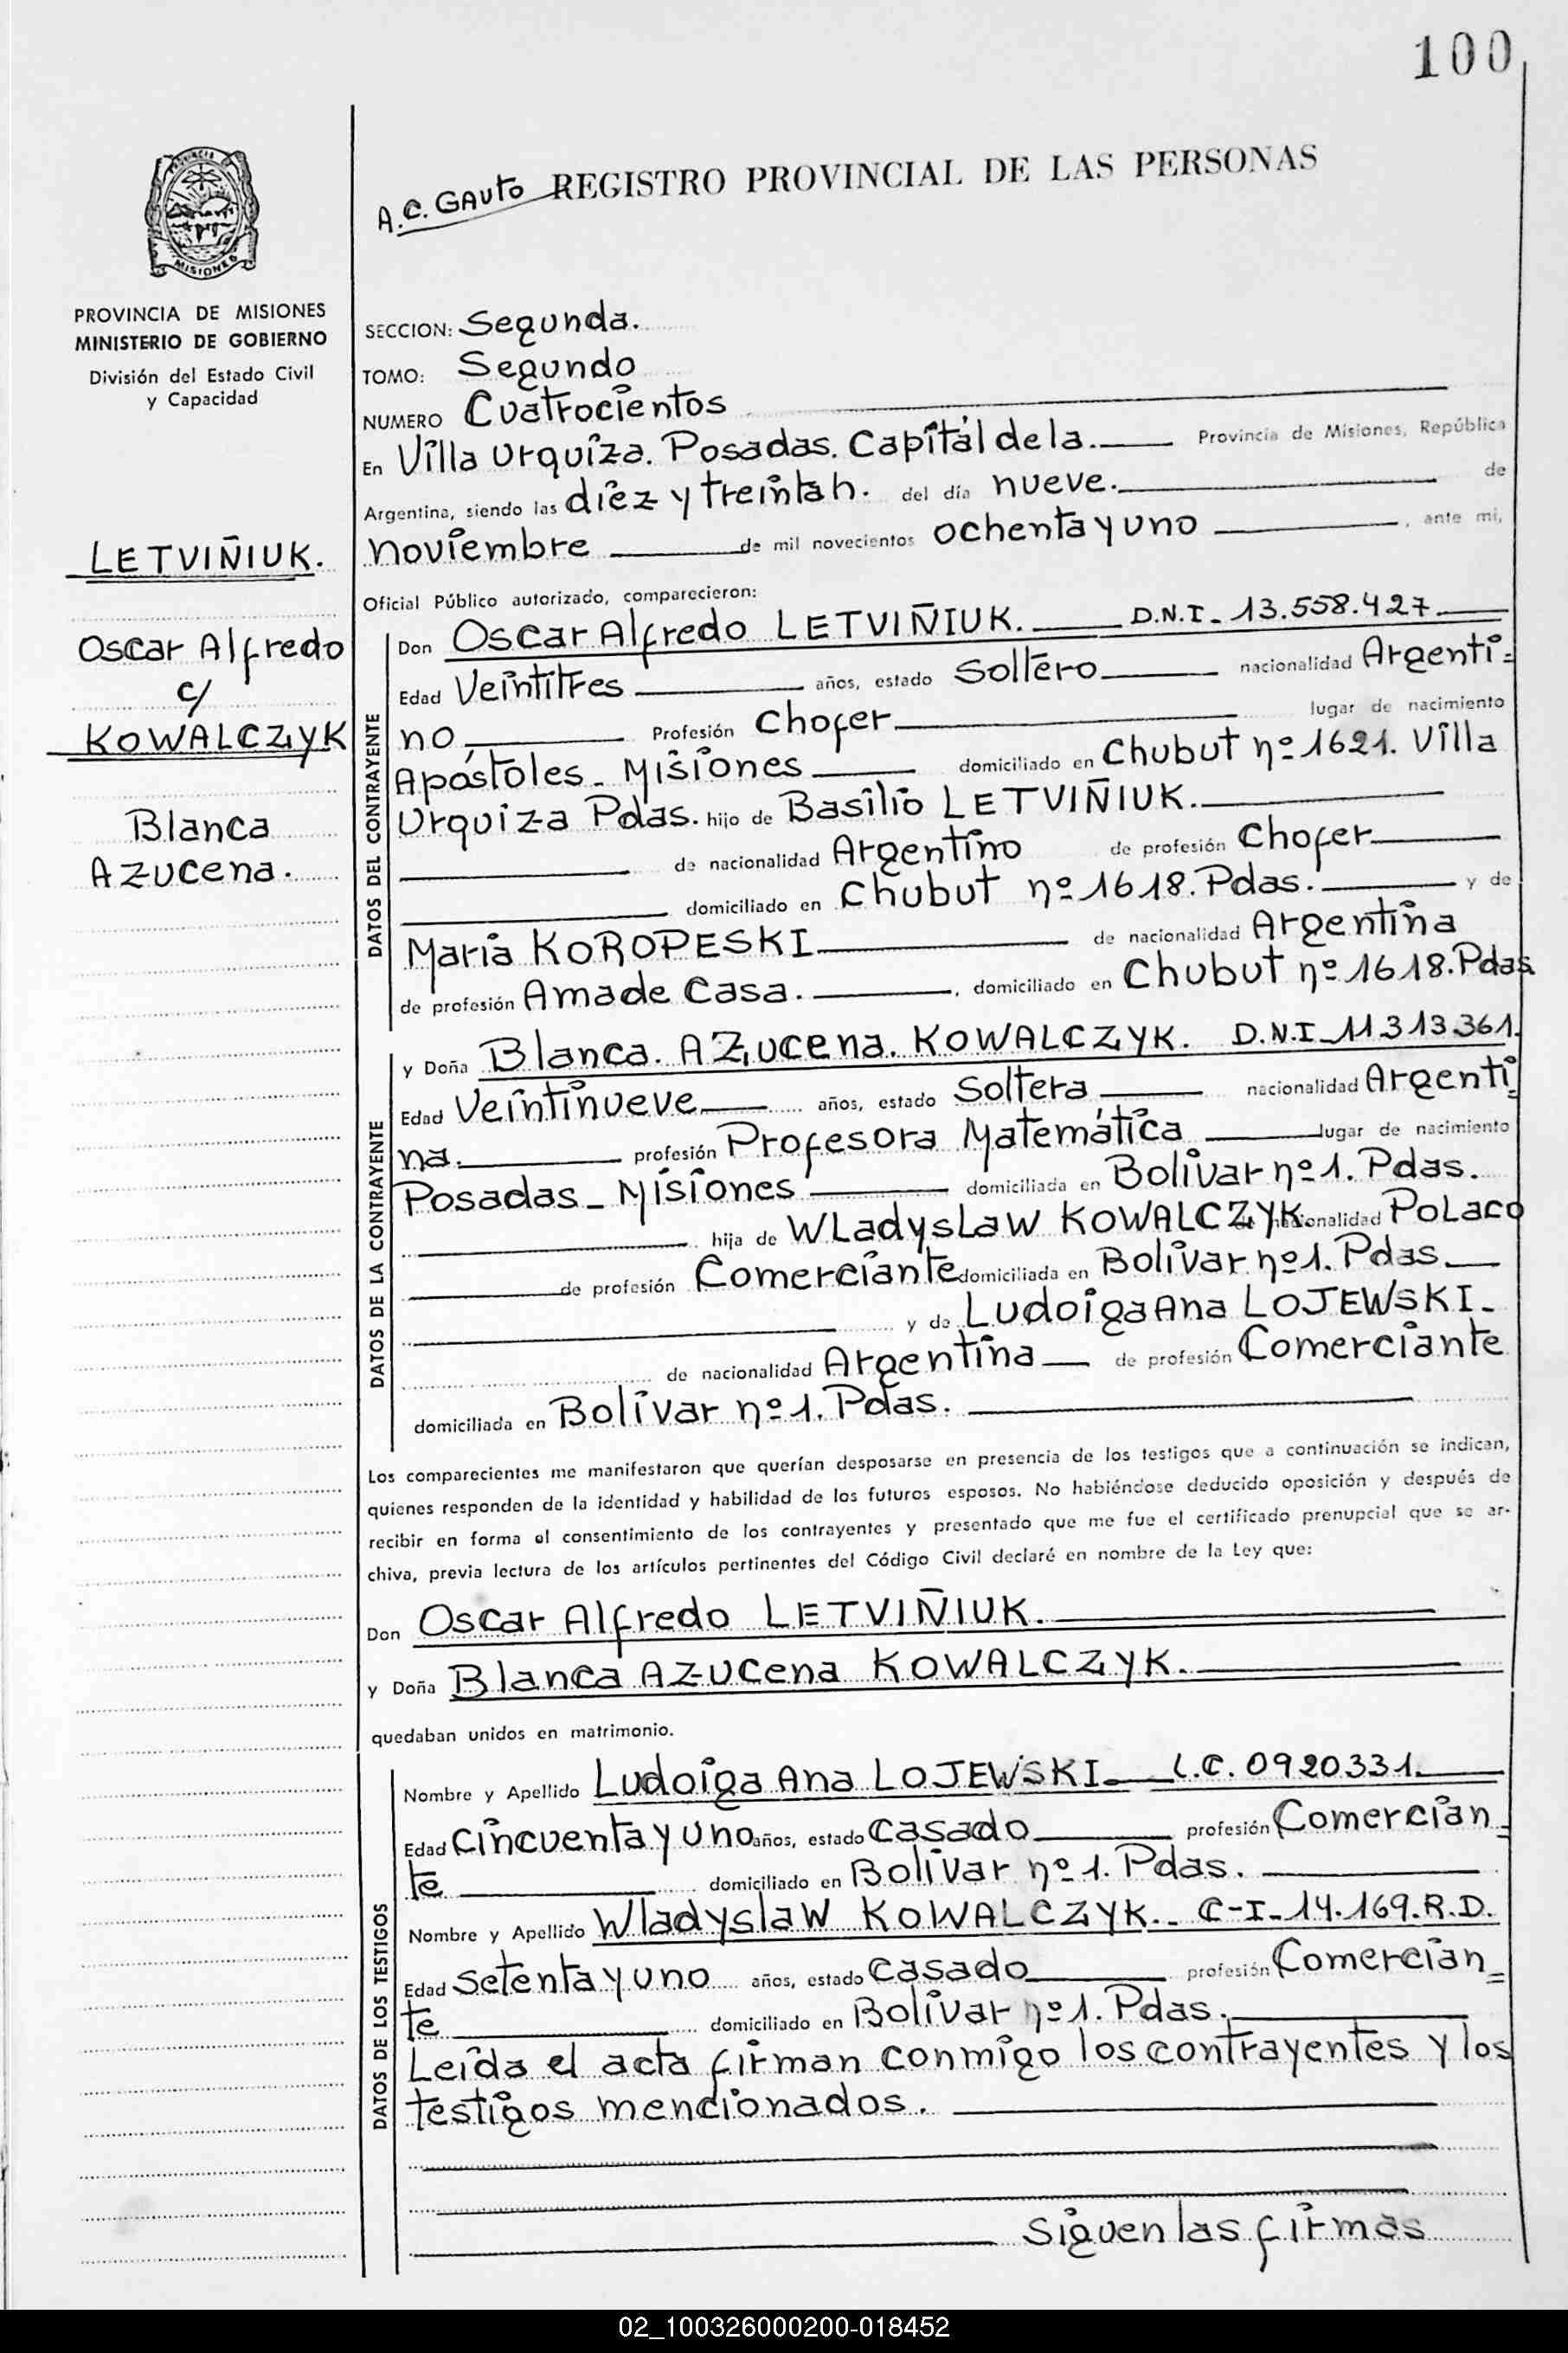 100
A.C. GAUTO REGISTRO PROVINCIAL DE LAS PERSONAS
PROVINCIA
MISIONES
PROVINCIA DE MISIONES
MINISTERIO DE GOBIERNO
División del Estado Civil
y Capacidad
LETVIÑIUK.
Oscar Alfredo
c/
KOWALCZYK
Blanca
Azucena.
SECCION: Segunda.
TOMO: Segundo
NUMERO Cuatrocientos
En Villa Urquiza. Posadas. Capital de la. Provincia de Misiones, República
Argentina, siendo las diez y treinta h. del día nueve. de
noviembre de mil novecientos ochenta y uno , ante mi,
Oficial Público autorizado, comparecieron:
DATOS DEL CONTRAYENTE
Don Oscar Alfredo LETVIÑIUK. D.N.I. 13.558.427
Edad Veintitres años, estado Soltero nacionalidad Argenti=
no, Profesión Chofer lugar de nacimiento
Apóstoles - Misiones domiciliado en Chubut nº 1621. Villa
Urquiza Pdas. hijo de Basilio LETVIÑIUK.
de nacionalidad Argentino de profesión Chofer
domiciliado en Chubut nº 1618. Pdas. y de
Maria KOROPESKI de nacionalidad Argentina
de profesión Ama de Casa. , domiciliado en Chubut nº 1618. Pdas
DATOS DE LA CONTRAYENTE
y Doña Blanca. Azucena. KOWALCZYK. D.N.I. 11.313.361.
Edad Veintinueve años, estado Soltera nacionalidad Argenti=
na. profesión Profesora Matemática lugar de nacimiento
Posadas - Misiones domiciliada en Bolívar nº 1. Pdas.
hija de Wladyslaw KOWALCZYK de nacionalidad Polaco
de profesión Comerciante domiciliada en Bolívar nº 1. Pdas.
y de Ludoiga Ana LOJEWSKI.
de nacionalidad Argentina de profesión Comerciante
domiciliada en Bolívar nº 1. Pdas.
Los comparecientes me manifestaron que querían desposarse en presencia de los testigos que a continuación se indican,
quienes responden de la identidad y habilidad de los futuros esposos. No habiéndose deducido oposición y después de
recibir en forma el consentimiento de los contrayentes y presentado que me fue el certificado prenupcial que se ar-
chiva, previa lectura de los artículos pertinentes del Código Civil declaré en nombre de la Ley que:
Don Oscar Alfredo LETVIÑIUK.
y Doña Blanca Azucena KOWALCZYK.
quedaban unidos en matrimonio.
DATOS DE LOS TESTIGOS
Nombre y Apellido Ludoiga Ana LOJEWSKI. L.C. 0920331.
Edad Cincuenta y uno años, estado Casado profesión Comercian=
te domiciliado en Bolívar nº 1. Pdas.
Nombre y Apellido Wladyslaw KOWALCZYK. C-I-14.169.R.D.
Edad Setenta y uno años, estado Casado profesión Comercian=
te domiciliado en Bolívar nº 1. Pdas.
Leída el acta firman conmigo los contrayentes y los
testigos mencionados.
Siguen las firmas
02_100326000200-018452